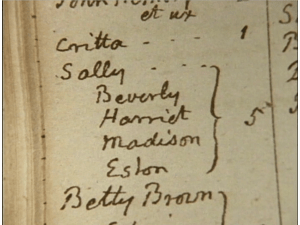 et ux
Critta - - - 1
Sally - - - -
Beverly
Harriet
Madison
Eston
5
Betty Brown